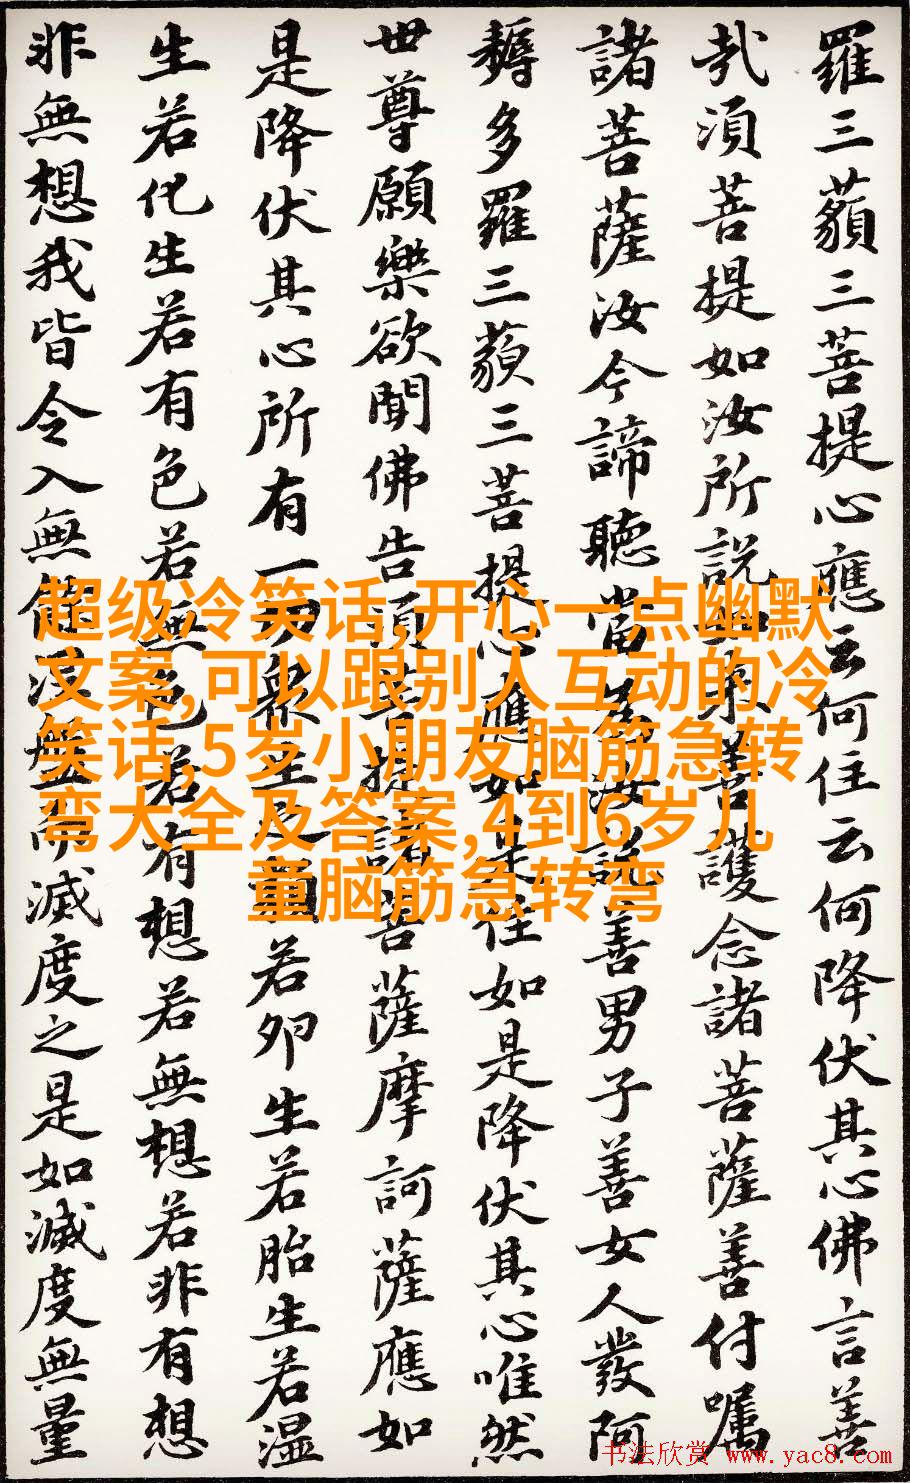 羅三藐三菩提心應云何住云何降伏其心佛言善
哉須菩提如汝所說如來善護念諸菩薩善付囑
諸菩薩汝今諦聽當為汝說善男子善女人發阿
耨多羅三藐三菩提心應如是住如是降伏其心唯然
世尊願樂欲聞佛告須菩提諸菩薩摩訶薩應如
是降伏其心所有一切眾生之類若卵生若胎生若濕
生若化生若有色若無色若有想若無想若非有想
非無想我皆令入無餘涅槃而滅度之是如滅度無量
超级冷笑话,开心一点幽默
文案,可以跟别人互动的冷
笑话,5岁小朋友脑筋急转
弯大全及答案,4到6岁儿
童脑筋急转弯
书法欣赏 www.yac8.com